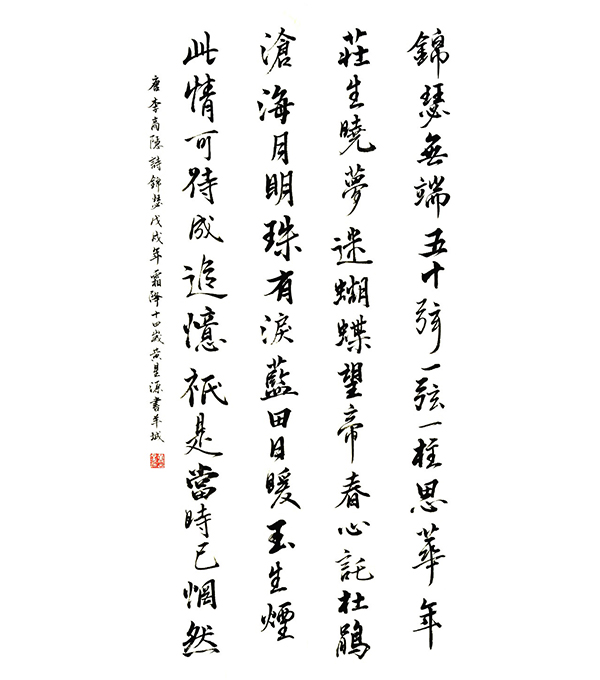 錦瑟無端五十弦一弦一柱思華年
莊生曉夢迷蝴蝶望帝春心託杜鵑
滄海月明珠有淚藍田日暖玉生煙
此情可待成追憶祇是當時已惘然
唐李商隱詩錦瑟戊戌年霜降十四歲黃星源書羊城